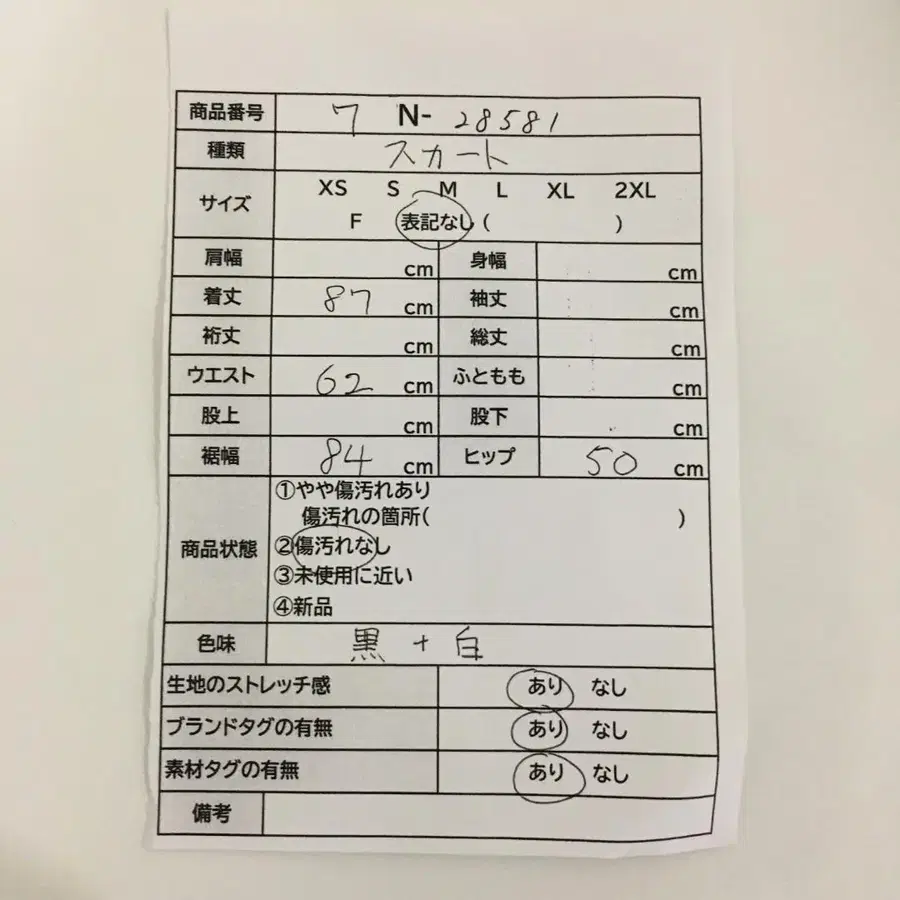 商品番号 7 N- 28581
種類 スカート
サイズ XS S M L XL 2XL
F 表記なし ( )
肩幅 cm 身幅 cm
着丈 87 cm 袖丈 cm
裄丈 cm 総丈 cm
ウエスト 62 cm ふともも cm
股上 cm 股下 cm
裾幅 84 cm ヒップ 50 cm
商品状態 ①やや傷汚れあり
傷汚れの箇所( )
②傷汚れなし
③未使用に近い
④新品
色味 黒 + 白
生地のストレッチ感 あり なし
ブランドタグの有無 あり なし
素材タグの有無 あり なし
備考